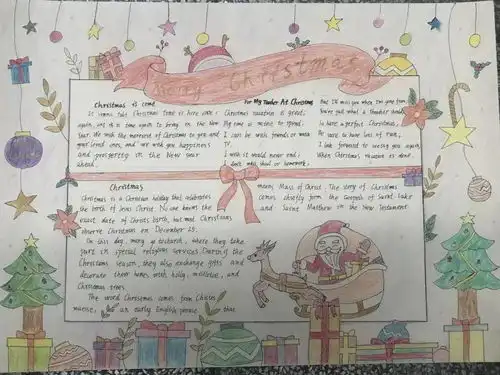 Merry Christmas
Christmas is come
It seems that Christmas time is here once
again, and it is time again to bring in the New
Year. We wish the merriest of Christmas to you and
your loved ones, and we wish you happiness
and prosperity in the New Year
ahead.
For My Teacher At Christmas
Christmas vacation is great;
My time is mine to spend;
I can be with friends or watch
TV.
I wish it would never end;
I don't miss school or homework,
But I'll miss you when I'm gone from
You're just what a teacher should
So have a perfect Christmas,
Be sure to have lots of fun,
I look forward to seeing you again
When Christmas vacation is done.
Christmas
Christmas is a Christian holiday that celebrates
the birth of Jesus Christ. No one knows the
exact date of Christ's birth, but most Christians
observe Christmas on December 25.
On this day, many go to church, where they take
part in special religious services. During the
Christmas season, they also exchange gifts and
decorate their homes with holly, mistletoe, and
Christmas trees.
The word Christmas comes from
an early English phrase that
means Mass of Christ. The story of Christmas
comes chiefly from the Gospels of Saint Luke
and Saint Matthew in the New Testament.